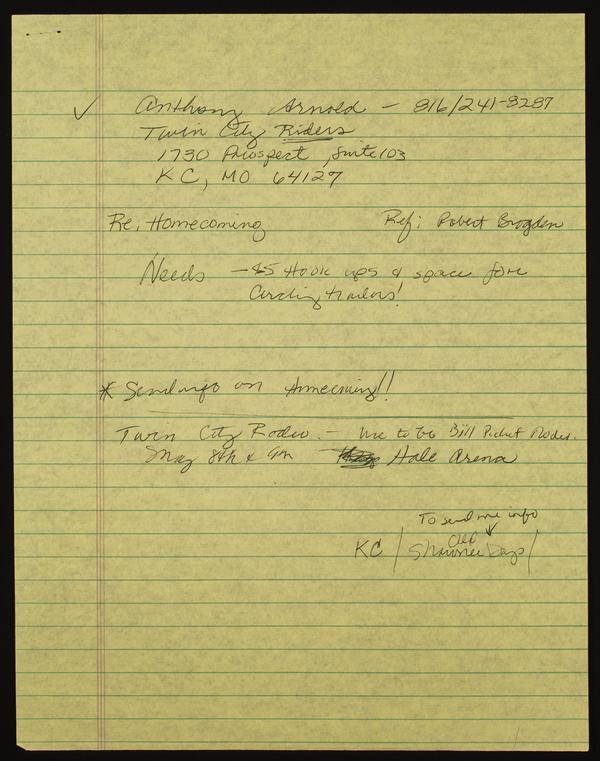 ✓ Anthony Arnold - 816/241-8287
Twin City Riders
1730 Prospect, Suite 103
KC, MO 64127
Re, Homecoming Ref: Robert Brogden
Needs - 45 Hook ups & space for
Circling trailors!
* Send info on Homecoming!!
Twin City Rodeo - Use to be Bill Picket Rodeo.
May 8th & 9th Hale Arena
To send me info
KC / Shawnee Days /
Old